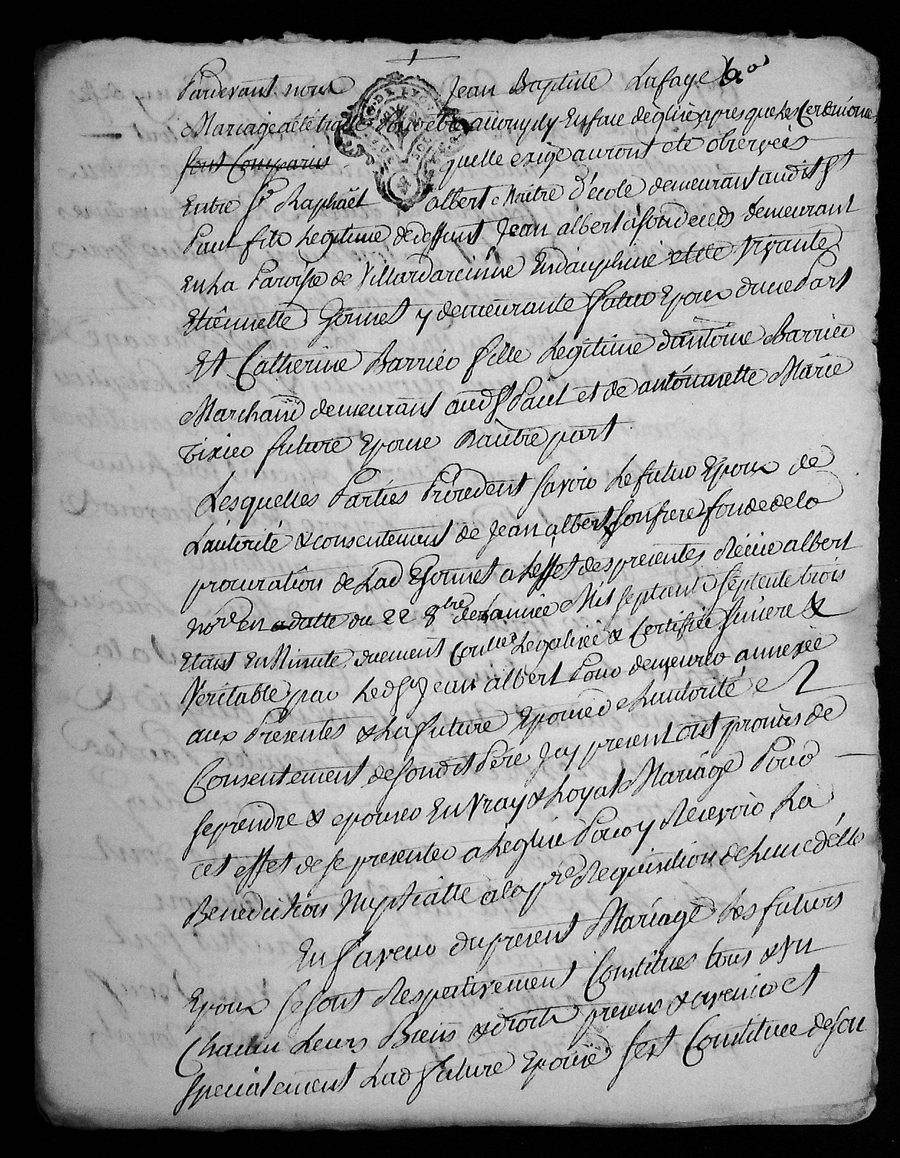 Pardevant nous Jean Baptiste Lafage
Mariage a été traité pour être accomply En face d'église apres que les Ceremonies
sont Comparus quelle exige auront eté observées
Entre Sr Raphaël albert Maître d'école demeurant audit St
Paul fils Legitime de deffunt Jean albert demeurant
En La Paroisse de Villardarenne En dauphiné et de vivante
Etiennette Gonnet y demeurante futur Epoux d'une Part
Et Catherine Barrier fille Légitime d'antoine Barrier
Marchand demeurant aud St Paul et de antoinnette Marie
future Epouse D'autre part
Lesquelles Parties Procedent savoir Le futur Epoux de
L'autorité & consentement de Jean albert son frere fondé de la
procuration de Lad Gonnet a L'effet des presentes Récue albert
nore en datte du 22 8bre de L'année Mil sept cent septente trois
Etant En Minute duement Conllee Legalisée & Certifiée Sincere &
Veritable par Led Sr Jean albert Pour demeurer annexée
aux Presentes & La future Epouse de L'autorité &
Consentement de son dit Pére Icy present ont promis de
se prendre & epouser En Vray & Loyal Mariage Pour
cet effet de se presenter a L'eglise Pour y Recevoir La
Benediction Nuptialle a la pre Requisition de L'un d'élle
En faveur du present Mariage Les futurs
Epoux se sont Respectivement Constitués tous & Un
Chacun Leurs Biens & droits presens & avenir et
specialement Lad future Epouse s'est Constituée de son